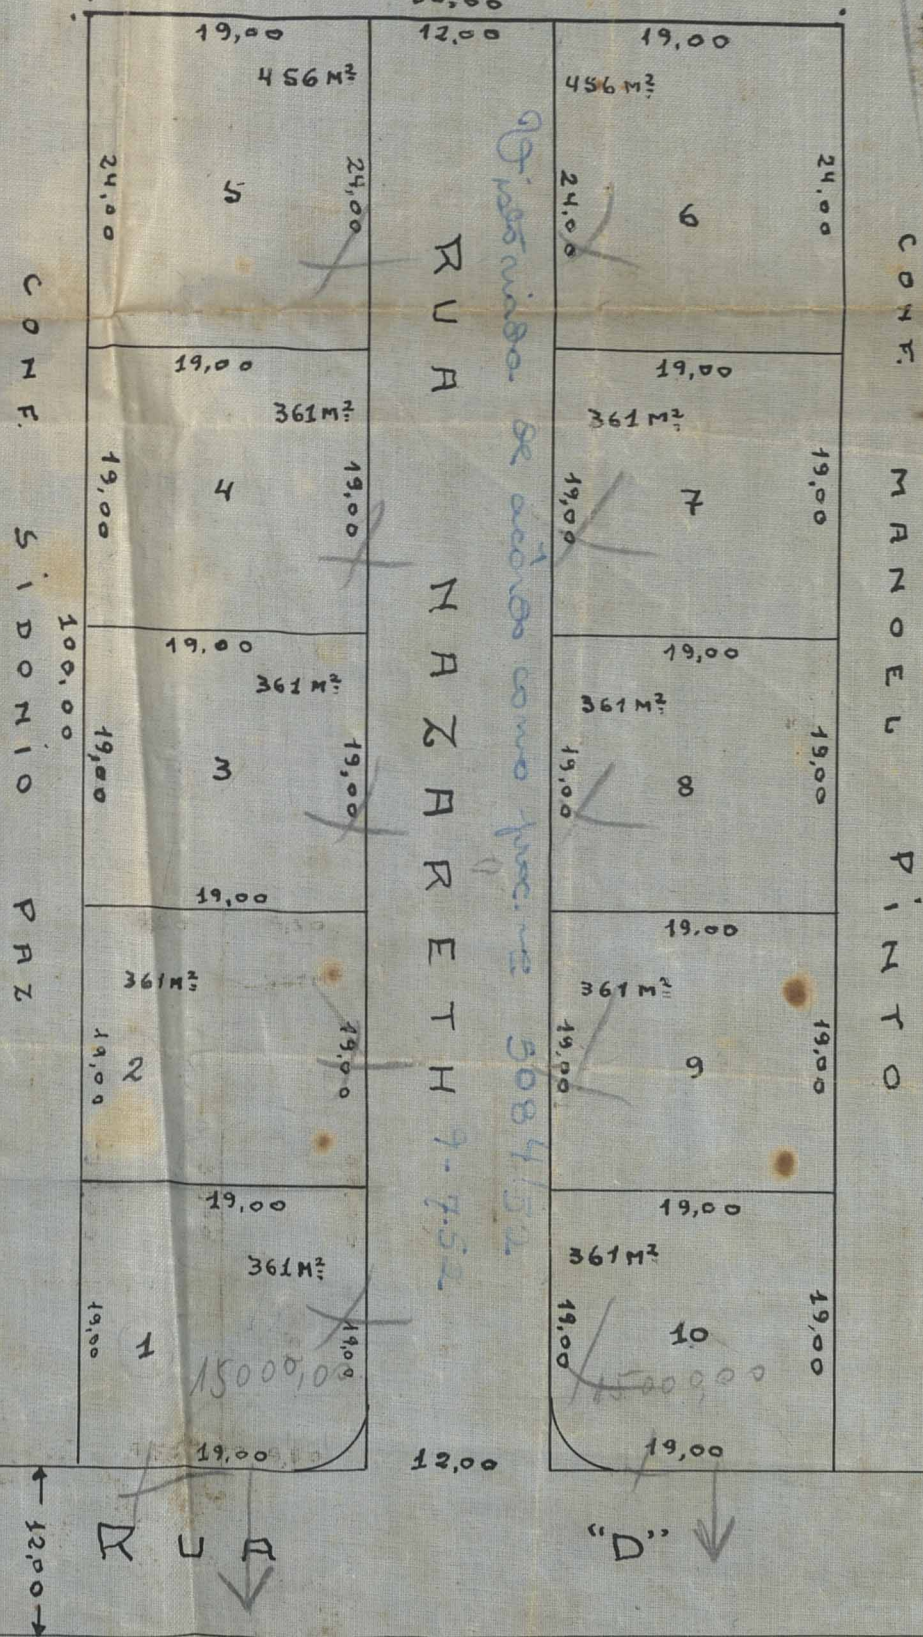 19,00 12,00 19,00
456 M² 456 M²
24,00 5 24,00 24,00 6 24,00
19,00 19,00
361 M² 361 M²
19,00 4 19,00 19,00 7 19,00
19,00 19,00
361 M² 361 M²
19,00 3 19,00 19,00 8 19,00
19,00 19,00
361 M² 361 M²
19,00 2 19,00 19,00 9 19,00
19,00 19,00
361 M² 361 M²
19,00 1 19,00 19,00 10 19,00
15000,00 15000,00
19,00 12,00 19,00
CONF. SIDONIO PAZ
100,00
RUA NAZARETH
de acôrdo com o proc. nº 5084/52
9-7-52
CONF. MANOEL PINTO
12,00
RUA "D"